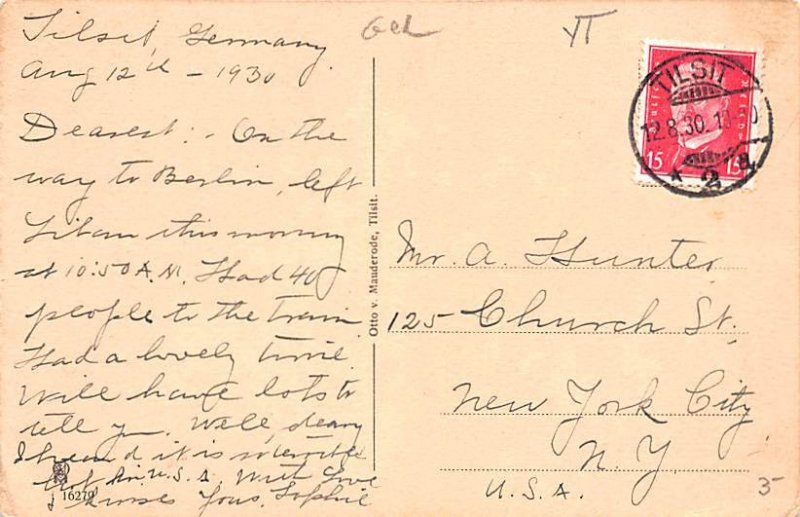 Tilsit, Germany
Aug 12th - 1930
Dearest: - On the
way to Berlin, left
Libau this morning
at 10:50 A.M. Had 40
people to the train
Had a lovely time.
Will have lots to
tell you. Well, deary
I heard it is so terrible
hot in U.S.A. With love
& kisses Yours, Sophie
16279
Otto v. Mauderode, Tilsit.
TILSIT
12.8.30.
* 2 a
15 15
Mr. A. Hunter
125 Church St.
New York City
N.Y.
U.S.A.
5